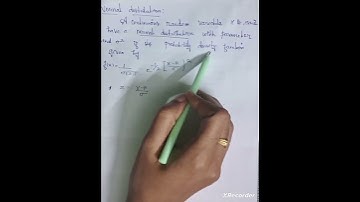 Normal distribution:
A continuous random variable X is said
have a normal distribution with parameters
and σ² if its probability density function
given by
f(x) = 1/σ√2π e^-1/2 [x-μ/σ]²
z = x-μ/σ
XRecorder